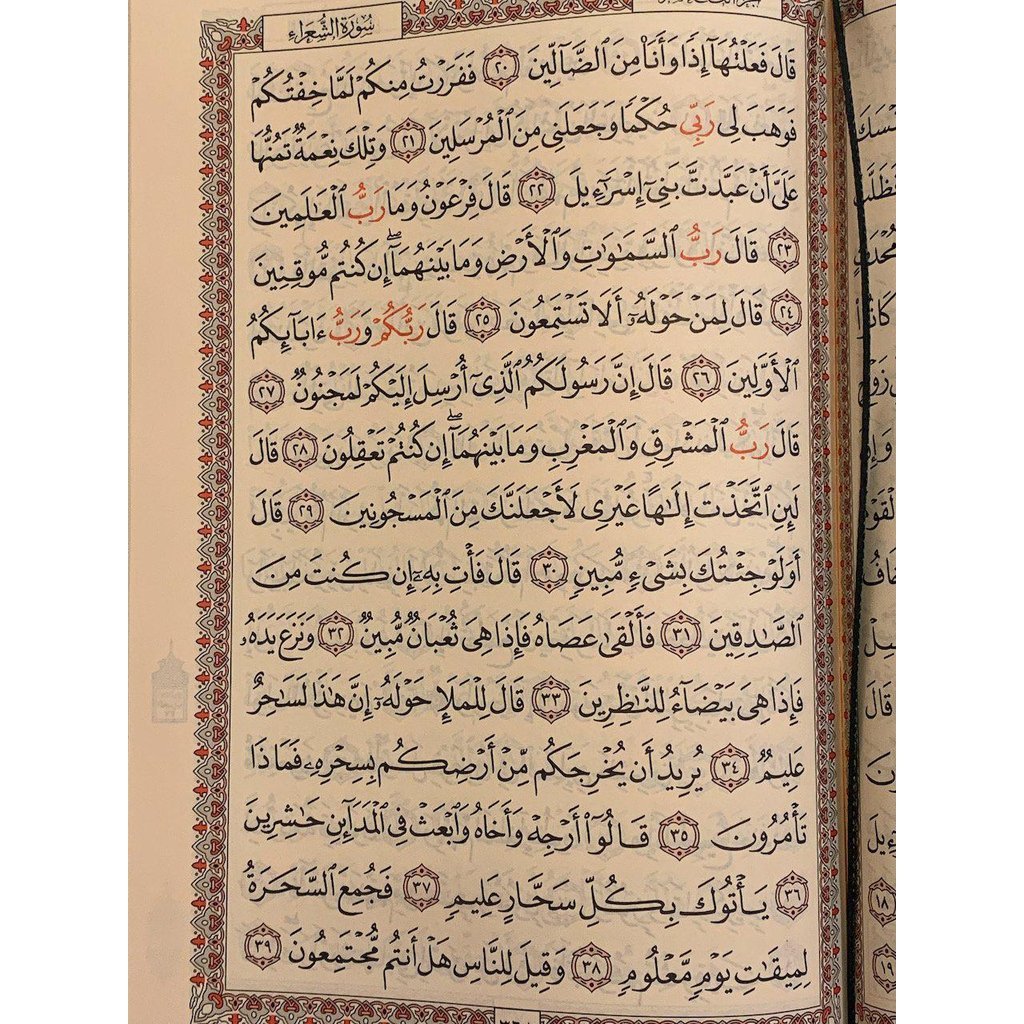 سُورَةُ الشُّعَرَاءِ
قَالَ فَعَلْتُهَآ إِذًا وَأَنَا۠ مِنَ ٱلضَّآلِّينَ ٢٠ فَفَرَرْتُ مِنكُمْ لَمَّا خِفْتُكُمْ
فَوَهَبَ لِى رَبِّى حُكْمًا وَجَعَلَنِى مِنَ ٱلْمُرْسَلِينَ ٢١ وَتِلْكَ نِعْمَةٌ تَمُنُّهَا
عَلَىَّ أَنْ عَبَّدتَّ بَنِىٓ إِسْرَٰٓءِيلَ ٢٢ قَالَ فِرْعَوْنُ وَمَا رَبُّ ٱلْعَٰلَمِينَ
٢٣ قَالَ رَبُّ ٱلسَّمَٰوَٰتِ وَٱلْأَرْضِ وَمَا بَيْنَهُمَآ ۖ إِن كُنتُم مُّوقِنِينَ
٢٤ قَالَ لِمَنْ حَوْلَهُۥٓ أَلَا تَسْتَمِعُونَ ٢٥ قَالَ رَبُّكُمْ وَرَبُّ ءَابَآئِكُمُ
ٱلْأَوَّلِينَ ٢٦ قَالَ إِنَّ رَسُولَكُمُ ٱلَّذِىٓ أُرْسِلَ إِلَيْكُمْ لَمَجْنُونٌ ٢٧
قَالَ رَبُّ ٱلْمَشْرِقِ وَٱلْمَغْرِبِ وَمَا بَيْنَهُمَآ ۖ إِن كُنتُمْ تَعْقِلُونَ ٢٨ قَالَ
لَئِنِ ٱتَّخَذْتَ إِلَٰهًا غَيْرِى لَأَجْعَلَنَّكَ مِنَ ٱلْمَسْجُونِينَ ٢٩ قَالَ
أَوَلَوْ جِئْتُكَ بِشَىْءٍ مُّبِينٍ ٣٠ قَالَ فَأْتِ بِهِۦٓ إِن كُنتَ مِنَ
ٱلصَّٰدِقِينَ ٣١ فَأَلْقَىٰ عَصَاهُ فَإِذَا هِىَ ثُعْبَانٌ مُّبِينٌ ٣٢ وَنَزَعَ يَدَهُۥ
فَإِذَا هِىَ بَيْضَآءُ لِلنَّٰظِرِينَ ٣٣ قَالَ لِلْمَلَإِ حَوْلَهُۥٓ إِنَّ هَٰذَا لَسَٰحِرٌ
عَلِيمٌ ٣٤ يُرِيدُ أَن يُخْرِجَكُم مِّنْ أَرْضِكُم بِسِحْرِهِۦ فَمَاذَا
تَأْمُرُونَ ٣٥ قَالُوٓا۟ أَرْجِهْ وَأَخَاهُ وَٱبْعَثْ فِى ٱلْمَدَآئِنِ حَٰشِرِينَ
٣٦ يَأْتُوكَ بِكُلِّ سَحَّارٍ عَلِيمٍ ٣٧ فَجُمِعَ ٱلسَّحَرَةُ
لِمِيقَٰتِ يَوْمٍ مَّعْلُومٍ ٣٨ وَقِيلَ لِلنَّاسِ هَلْ أَنتُم مُّجْتَمِعُونَ ٣٩